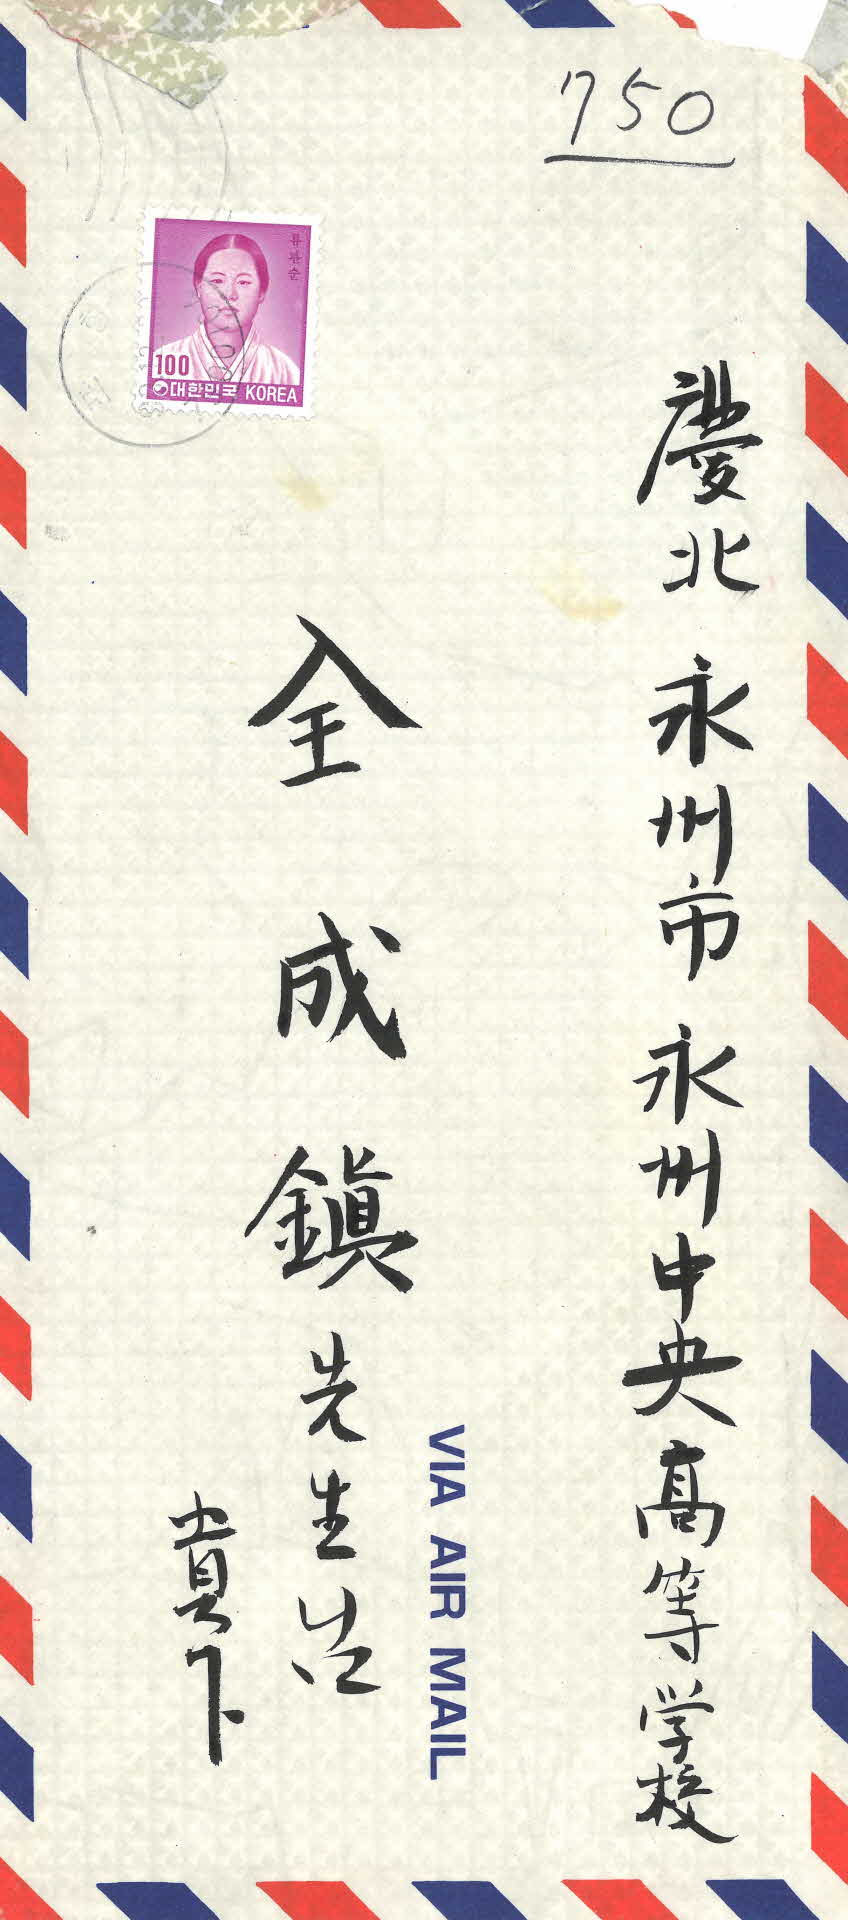 750
류관순
100
대한민국 KOREA
慶北 永州市 永州中央高等学校
全成鎭 先生
貴下
VIA AIR MAIL